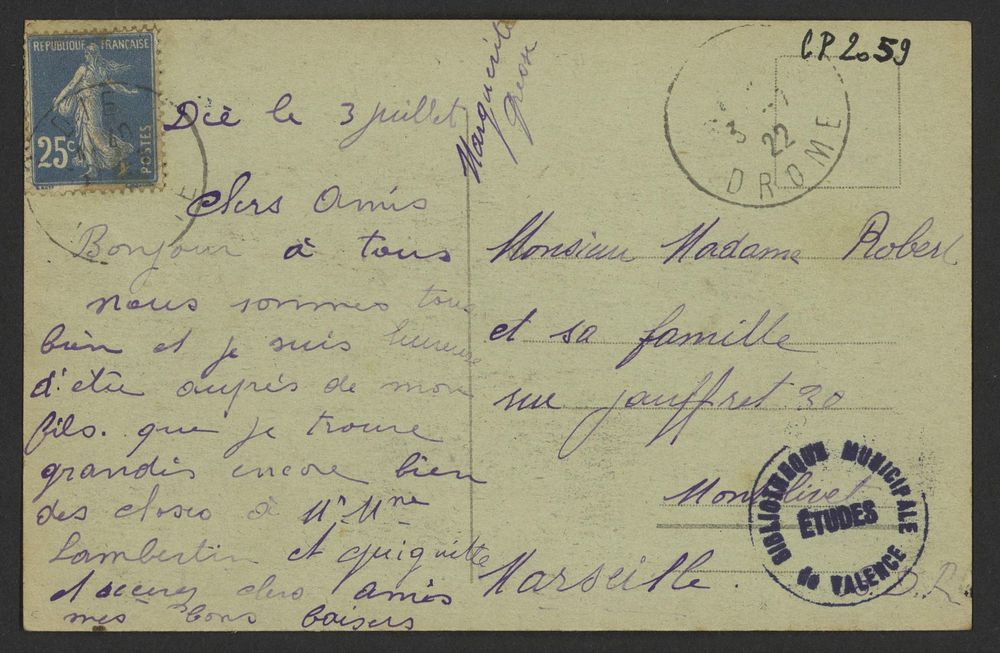 REPUBLIQUE FRANÇAISE
25c
POSTES
C.P. 2059
3 - 7
22
DROME
Marguerite
Die le 3 juillet
Chers Amis
Bonjour à tous
nous sommes tous
bien et je suis heureuse
d'être auprés de mon
fils. que je trouve
grandis encore bien
des choses à Mr Mme
Lambertin et guiguitte
et recevez chers amis
mes bons baisers
Monsieur Madame Robert
et sa famille
rue jauffret 30
Montolivet
Marseille.
B.D.R
BIBLIOTHEQUE MUNICIPALE
ÉTUDES
de VALENCE